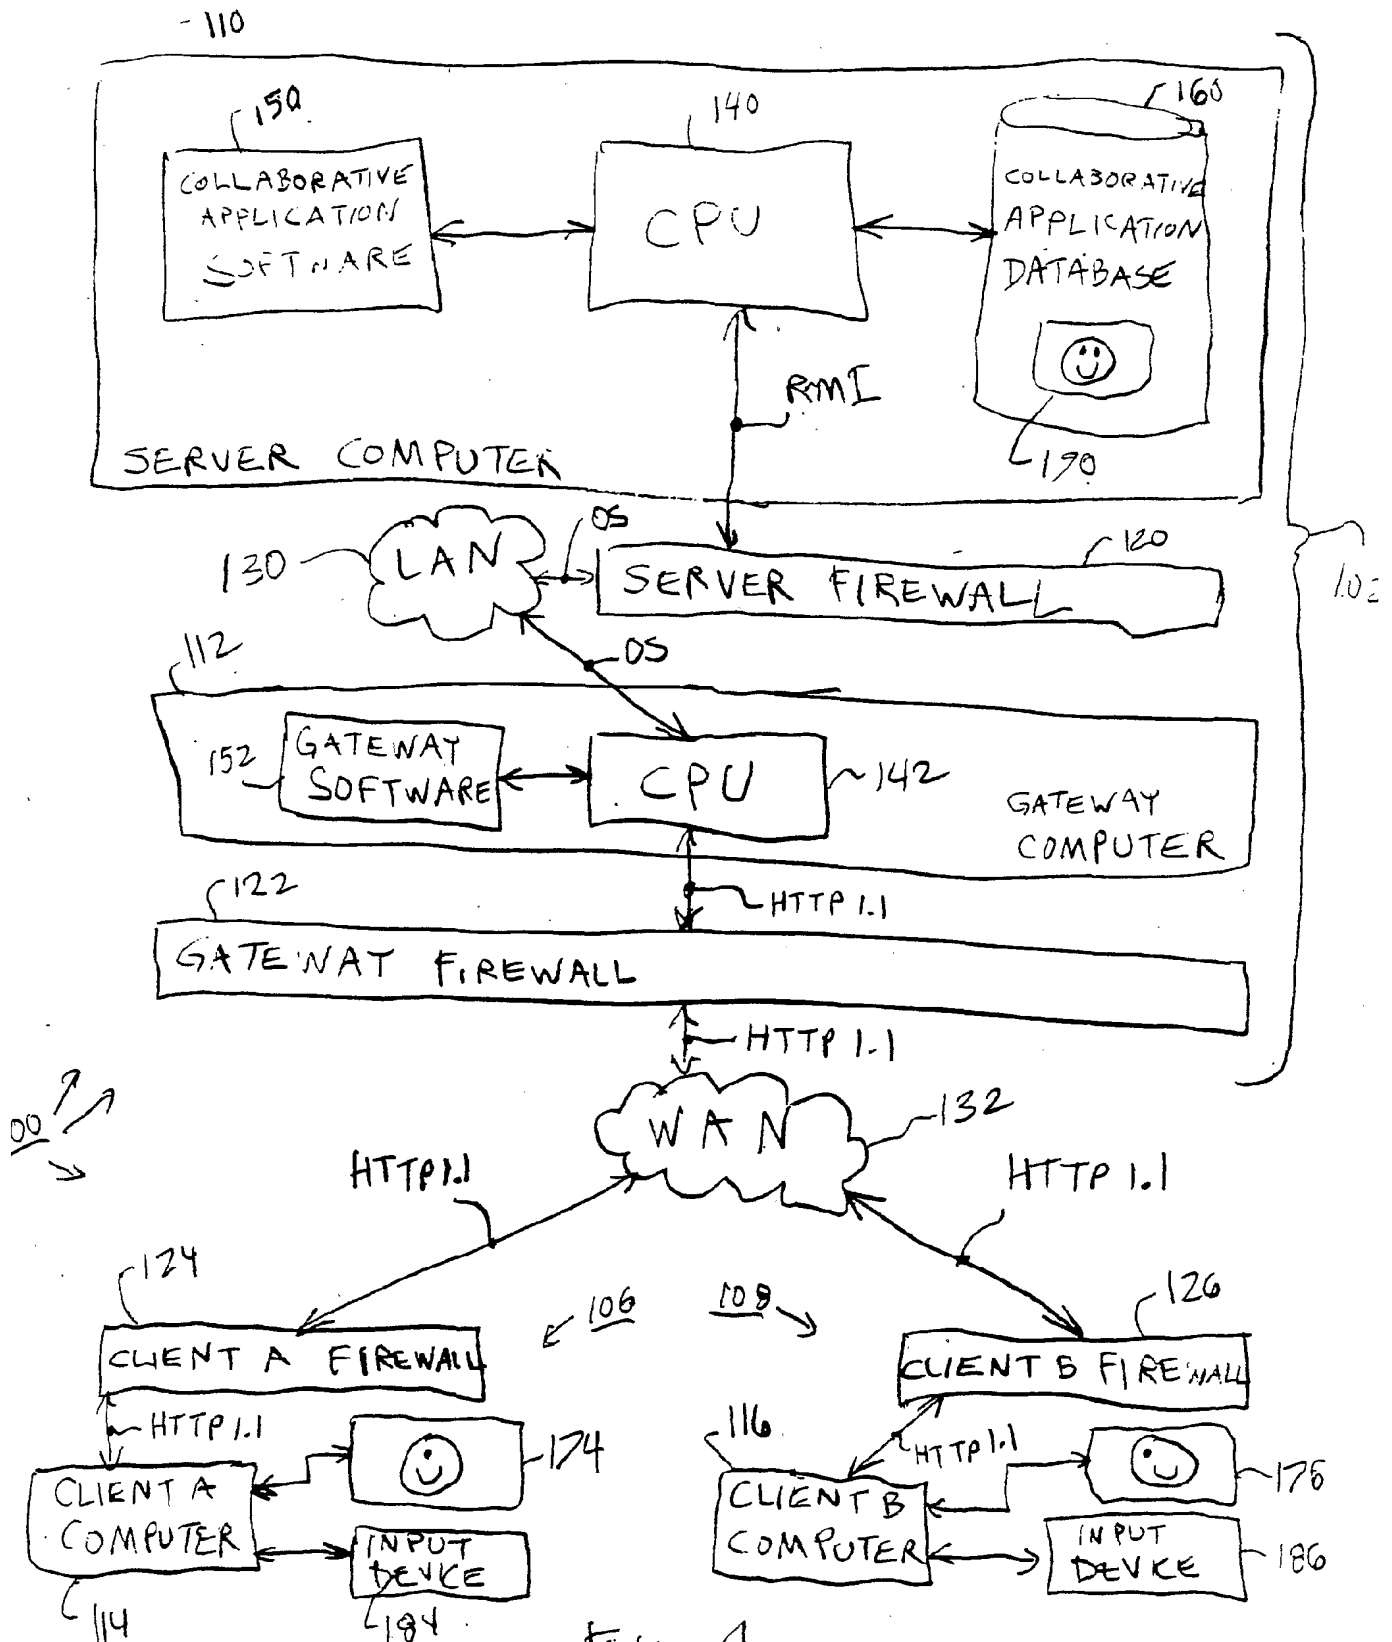 110
150
140
160
COLLABORATIVE
APPLICATION
SOFTWARE
CPU
COLLABORATIVE
APPLICATION
DATABASE
RMI
190
SERVER COMPUTER
OS
120
130
LAN
SERVER FIREWALL
102
OS
112
152
GATEWAY
SOFTWARE
CPU
142
GATEWAY
COMPUTER
122
HTTP 1.1
GATEWAY FIREWALL
HTTP 1.1
WAN
132
00
HTTP 1.1
HTTP 1.1
124
106
108
126
CLIENT A FIREWALL
CLIENT B FIREWALL
HTTP 1.1
174
116
HTTP 1.1
176
CLIENT A
COMPUTER
CLIENT B
COMPUTER
INPUT
DEVICE
INPUT
DEVICE
186
114
184